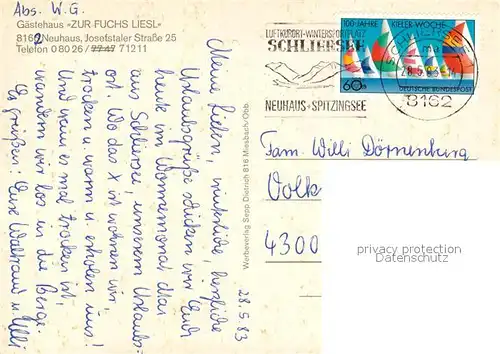 Abs. W. G.
Gästehaus »ZUR FUCHS LIESL«
8162 Neuhaus, Josefstaler Straße 25
Telefon 0 80 26 / 77 47 71211
LUFTKURORT-WINTERSPORTPLATZ
SCHLIERSEE
NEUHAUS-SPITZINGSEE
100 JAHRE KIELER WOCHE
60
DEUTSCHE BUNDESPOST
SCHLIERSEE
28.5.83-14
8162
Meine Lieben, herzliche
Urlaubsgrüße schicken wir Euch
heute im Wonnemonat Mai
aus Schliersee, unserem Urlaubs-
ort. Wo das x ist wohnen wir
trocken u. warm u. erholen uns!
Und wenn es mal trocken ist,
wandern wir los in die Berge.
Es grüßen! Eure Waltraud u. Willi
28.5.83
Werbeverlag Sepp Dietrich 816 Miesbach/Obb.
Fam. Willi Dörnenburg
Volk
4300
privacy protection
Datenschutz